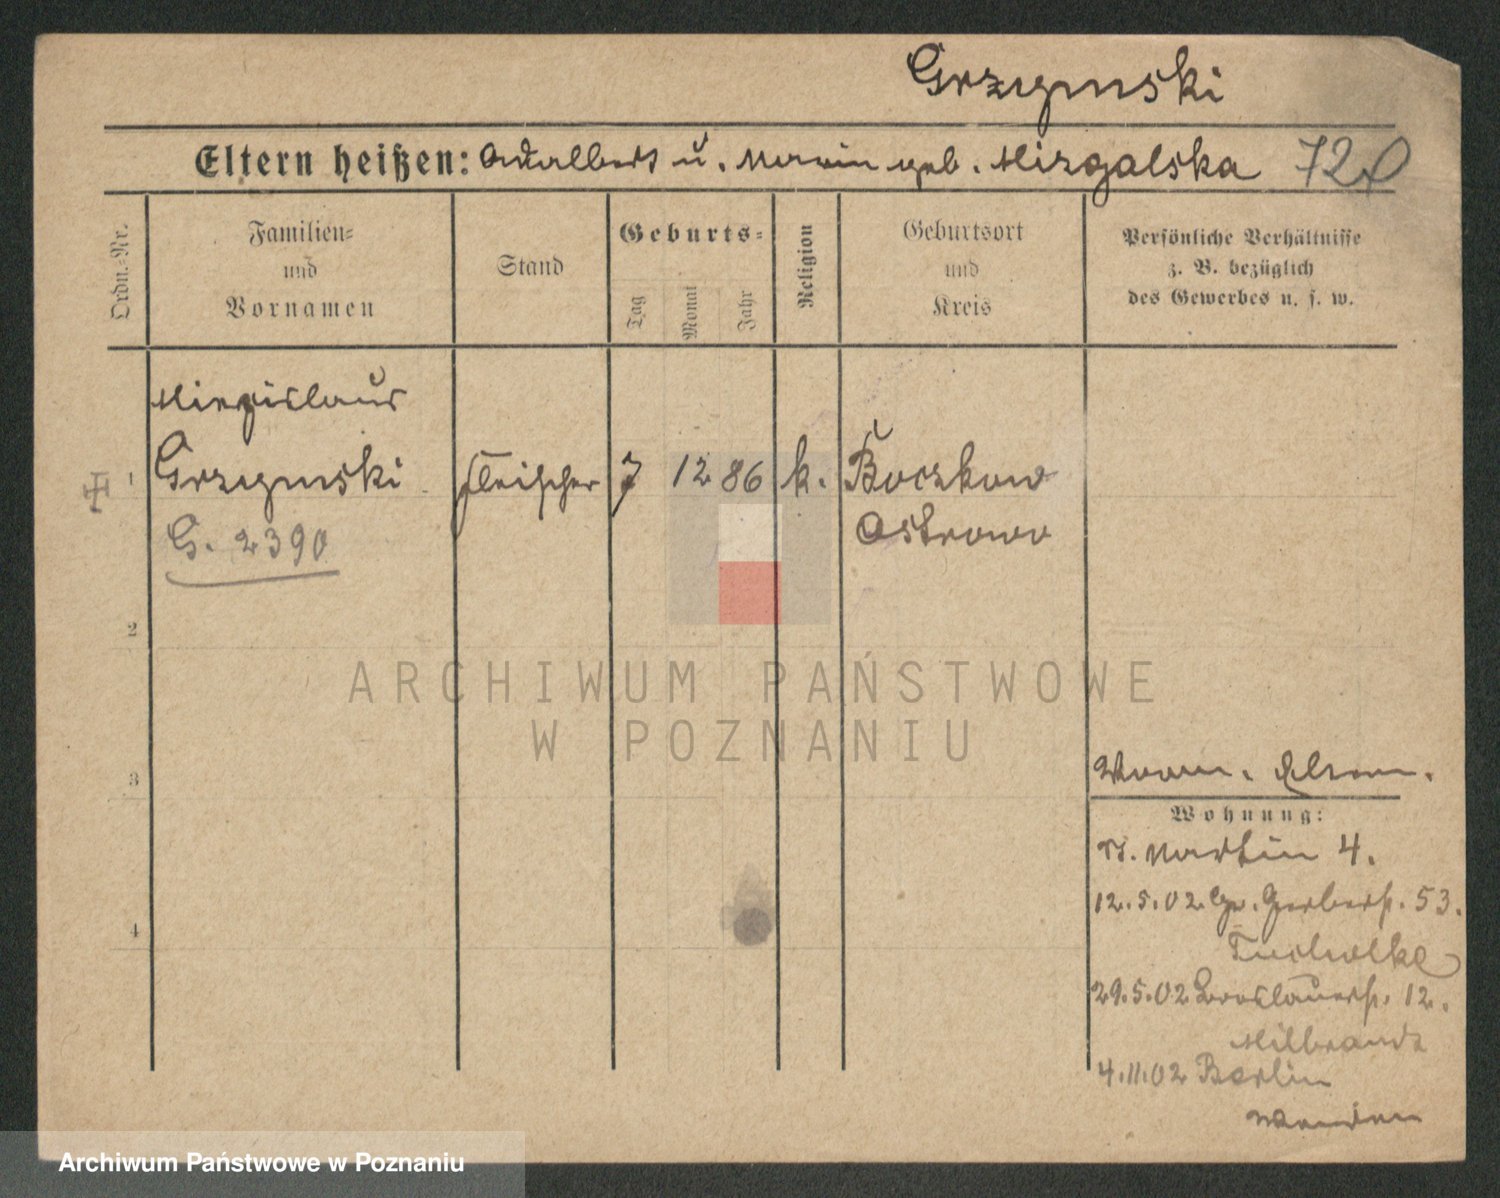 Grzymski
Eltern heißen: Adalbert u. Maria geb. Mizgalska 72
Ordn.-Nr.
Familien-
und
Vornamen
Stand
Geburts-
Tag
Monat
Jahr
Religion
Geburtsort
und
Kreis
Persönliche Verhältnisse
z. B. bezüglich
des Gewerbes u. s. w.
Miezislaus
1 Grzymski Fleischer 7 12 86 k. Boczkow
G. 2390 Ostrowo
2
3
Wohnung:
St. Martin 4.
4
12.5.02 Gr. Gerberst. 53.
Tucholke
29.5.02 Breslauerst. 12.
Hilbrandt
4.11.02 Berlin
ARCHIWUM PAŃSTWOWE
W POZNANIU
Archiwum Państwowe w Poznaniu